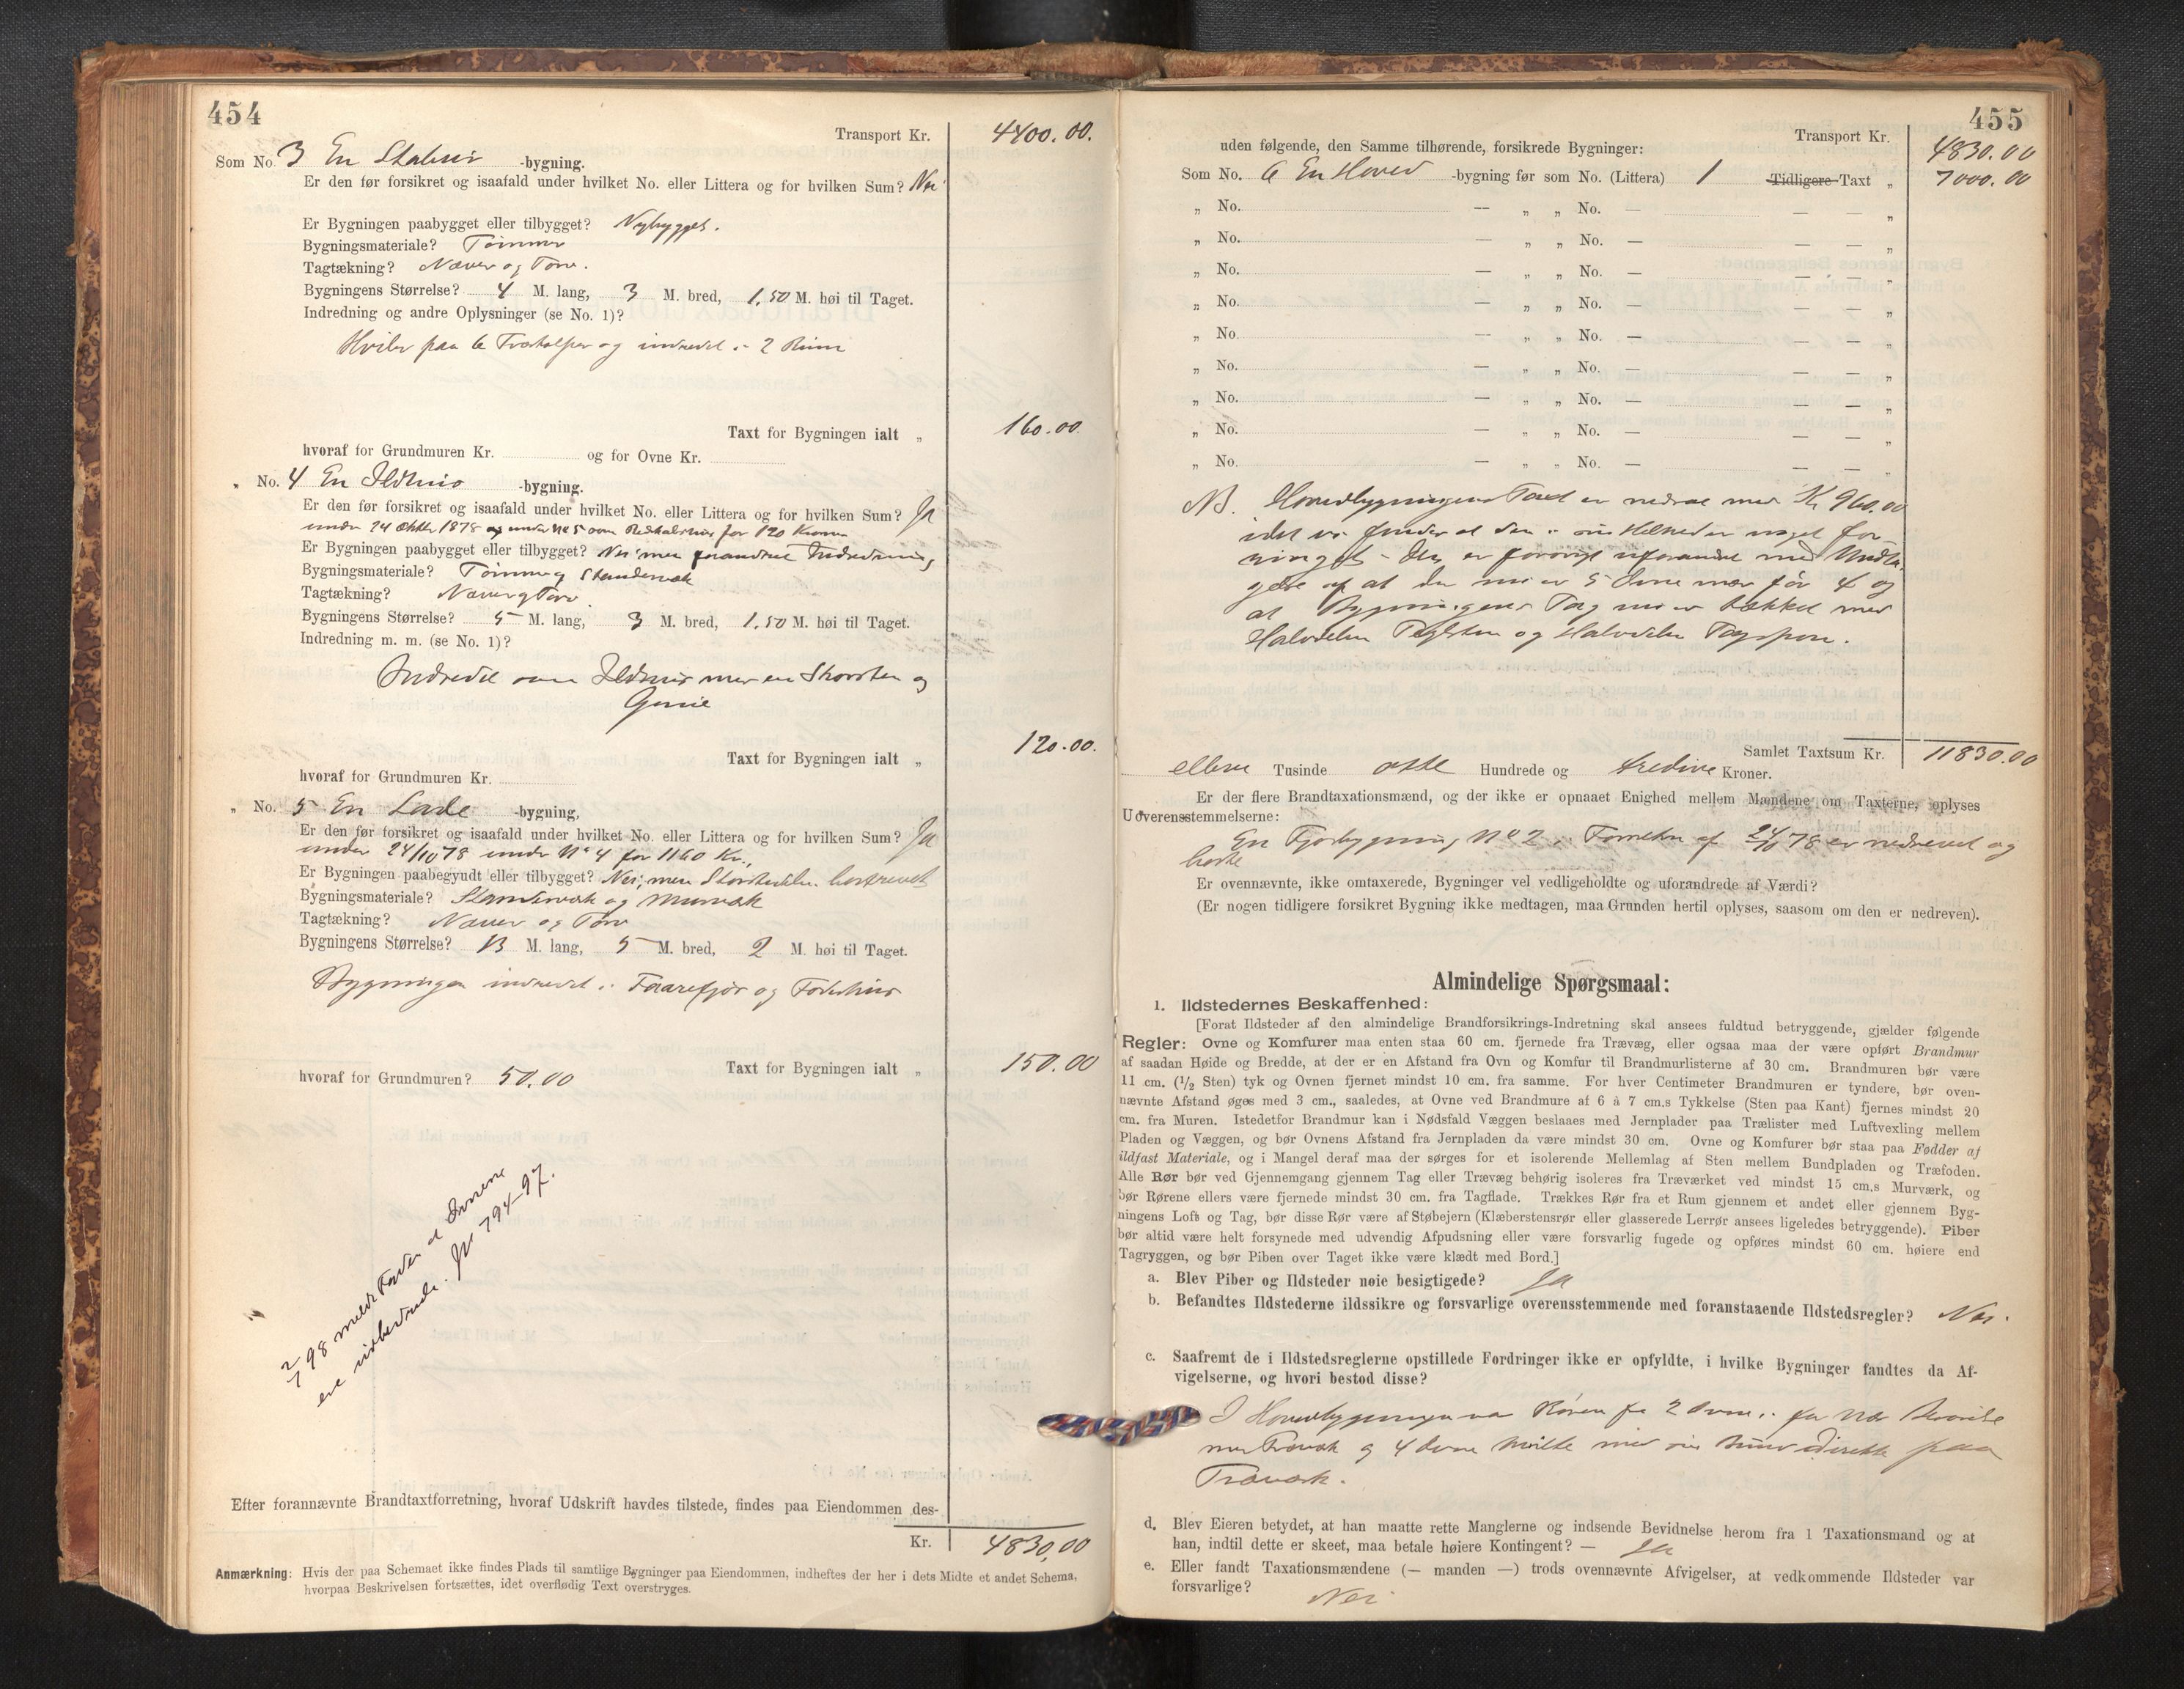 454
Transport Kr. 4400.00.
Som No. 3 En Stabur -bygning.
Er den før forsikret og isaafald under hvilket No. eller Littera og for hvilken Sum? Nei
Er Bygningen paabygget eller tilbygget? Nybygget.
Bygningsmateriale? Tømmer
Tagtækning? Næver og Torv.
Bygningens Størrelse? 4 M. lang, 3 M. bred, 1,50 M. høi til Taget.
Indredning og andre Oplysninger (se No. 1)?
Hviler paa 6 Træstolper og indredet i 2 Rum
Taxt for Bygningen ialt „ 160.00
hvoraf for Grundmuren Kr. og for Ovne Kr.
„ No. 4 En Ildhus -bygning.
Er den før forsikret og isaafald under hvilket No. eller Littera og for hvilken Sum? Ja
under 24 Oktbr 1878 og under No 5 som Redskabshus for 120 Kroner
Er Bygningen paabygget eller tilbygget? Nei men forandret Indredning
Bygningsmateriale? Tømmer og Standerværk
Tagtækning? Næver og Torv.
Bygningens Størrelse? 5 M. lang, 3 M. bred, 1.50 M. høi til Taget.
Indredning m. m. (se No. 1)?
Indredet som Ildhus med en Skorsten og
Grue
Taxt for Bygningen ialt „ 120.00.
hvoraf for Grundmuren Kr.
„ No. 5 En Lade -bygning,
Er den før forsikret og isaafald under hvilket No. eller Littera og for hvilken Sum? Ja
under 24/10 78 under No 4 for 1160 Kr.,
Er Bygningen paabegyndt eller tilbygget? Nei, men Størstedelen bortrevet
Bygningsmateriale? Standerværk og Murværk
Tagtækning? Næver og Torv
Bygningens Størrelse? 13 M. lang, 5 M. bred, 2 M. høi til Taget.
Bygningen indredet i Faarefjøs og Foderhus
Taxt for Bygningen ialt „ 150.00
hvoraf for Grundmuren? 50.00
2/7 98 meldt at Ovnene
ere udbedrede. Jr 794-97.
Efter forannævnte Brandtaxtforretning, hvoraf Udskrift havdes tilstede, findes paa Eiendommen des-
Kr. 4830,00
Anmærkning: Hvis der paa Schemaet ikke findes Plads til samtlige Bygninger paa Eiendommen, indheftes der her i dets Midte et andet Schema,
hvorpaa Beskrivelsen fortsættes, idet overflødig Text overstryges.
455
Transport Kr. 4830.00
uden følgende, den Samme tilhørende, forsikrede Bygninger:
Som No. 6 En Hoved -bygning før som No. (Littera) 1 Tidligere Taxt „ 7000.00
„ No. — „ „ No. — — — „
„ No. — „ „ No. — — — „
„ No. — „ „ No. — — — „
„ No. — „ „ No. — — — „
„ No. — „ „ No. — — — „
„ No. — „ „ No. — — — „
„ No. — „ „ No. — — — „
„ No. — „ „ No. — — — „
„ No. — „ „ No. — — — „
NB. Hovedbygningens Taxt er nedsat med Kr 960.00
idet vi finder at den i sin Helhed er noget for-
ringet - Den er forøvrigt uforandret med Undta-
gelse af at der nu er 5 Ovne mod før 4 og
at Bygningens Tag nu er tækket med
Halvdelen Teglsten og Halvdelen Tagspon.
Samlet Taxtsum Kr. 11830.00
elleve Tusinde otte Hundrede og tredive Kroner.
Er der flere Brandtaxationsmænd, og der ikke er opnaaet Enighed mellem Mændene om Taxterne, oplyses
Uoverensstemmelserne:
En Fjøsbygning No 2 i Forretn af 24/10 78 er nedrevet og
borte
Er ovennævnte, ikke omtaxerede, Bygninger vel vedligeholdte og uforandrede af Værdi?
(Er nogen tidligere forsikret Bygning ikke medtagen, maa Grunden hertil oplyses, saasom om den er nedreven).
Almindelige Spørgsmaal:
1. Ildstedernes Beskaffenhed:
[Forat Ildsteder af den almindelige Brandforsikrings-Indretning skal ansees fuldtud betryggende, gjælder følgende
Regler: Ovne og Komfurer maa enten staa 60 cm. fjernede fra Trævæg, eller ogsaa maa der være opført Brandmur
af saadan Høide og Bredde, at der er en Afstand fra Ovn og Komfur til Brandmurlisterne af 30 cm. Brandmuren bør være
11 cm. (1/2 Sten) tyk og Ovnen fjernet mindst 10 cm. fra samme. For hver Centimeter Brandmuren er tyndere, bør oven-
nævnte Afstand øges med 3 cm., saaledes, at Ovne ved Brandmure af 6 à 7 cm.s Tykkelse (Sten paa Kant) fjernes mindst 20
cm. fra Muren. Istedetfor Brandmur kan i Nødsfald Væggen beslaaes med Jernplader paa Trælister med Luftvexling mellem
Pladen og Væggen, og bør Ovnens Afstand fra Jernpladen da være mindst 30 cm. Ovne og Komfurer bør staa paa Fødder af
ildfast Materiale, og i Mangel deraf maa der sørges for et isolerende Mellemlag af Sten mellem Bundpladen og Træfoden.
Alle Rør bør ved Gjennemgang gjennem Tag eller Trævæg behørig isoleres fra Træværket ved mindst 15 cm.s Murværk, og
bør Rørene ellers være fjernede mindst 30 cm. fra Tagflade. Trækkes Rør fra et Rum gjennem et andet eller gjennem Byg-
ningens Loft og Tag, bør disse Rør være af Støbejern (Klæberstensrør eller glasserede Lerrør ansees ligeledes betryggende). Piber
bør altid være helt forsynede med udvendig Afpudsning eller være forsvarlig fugede og opføres mindst 60 cm. høiere end
Tagryggen, og bør Piben over Taget ikke være klædt med Bord.]
a. Blev Piber og Ildsteder nøie besigtigede? Ja
b. Befandtes Ildstederne ildssikre og forsvarlige overensstemmende med foranstaaende Ildstedsregler? Nei.
c. Saafremt de i Ildstedsreglerne opstillede Fordringer ikke er opfyldte, i hvilke Bygninger fandtes da Af-
vigelserne, og hvori bestod disse?
I Hovedbygningen var Rørene fra 2 Ovne i for nær Berørelse
med Træværk og 4 Ovne hvilte med sin Bund direkte paa
Træværk.
d. Blev Eieren betydet, at han maatte rette Manglerne og indsende Bevidnelse herom fra 1 Taxationsmand og at
han, indtil dette er skeet, maa betale høiere Kontingent? — Ja
e. Eller fandt Taxationsmændene (— manden —) trods ovennævnte Afvigelser, at vedkommende Ildsteder var
forsvarlige? Nei